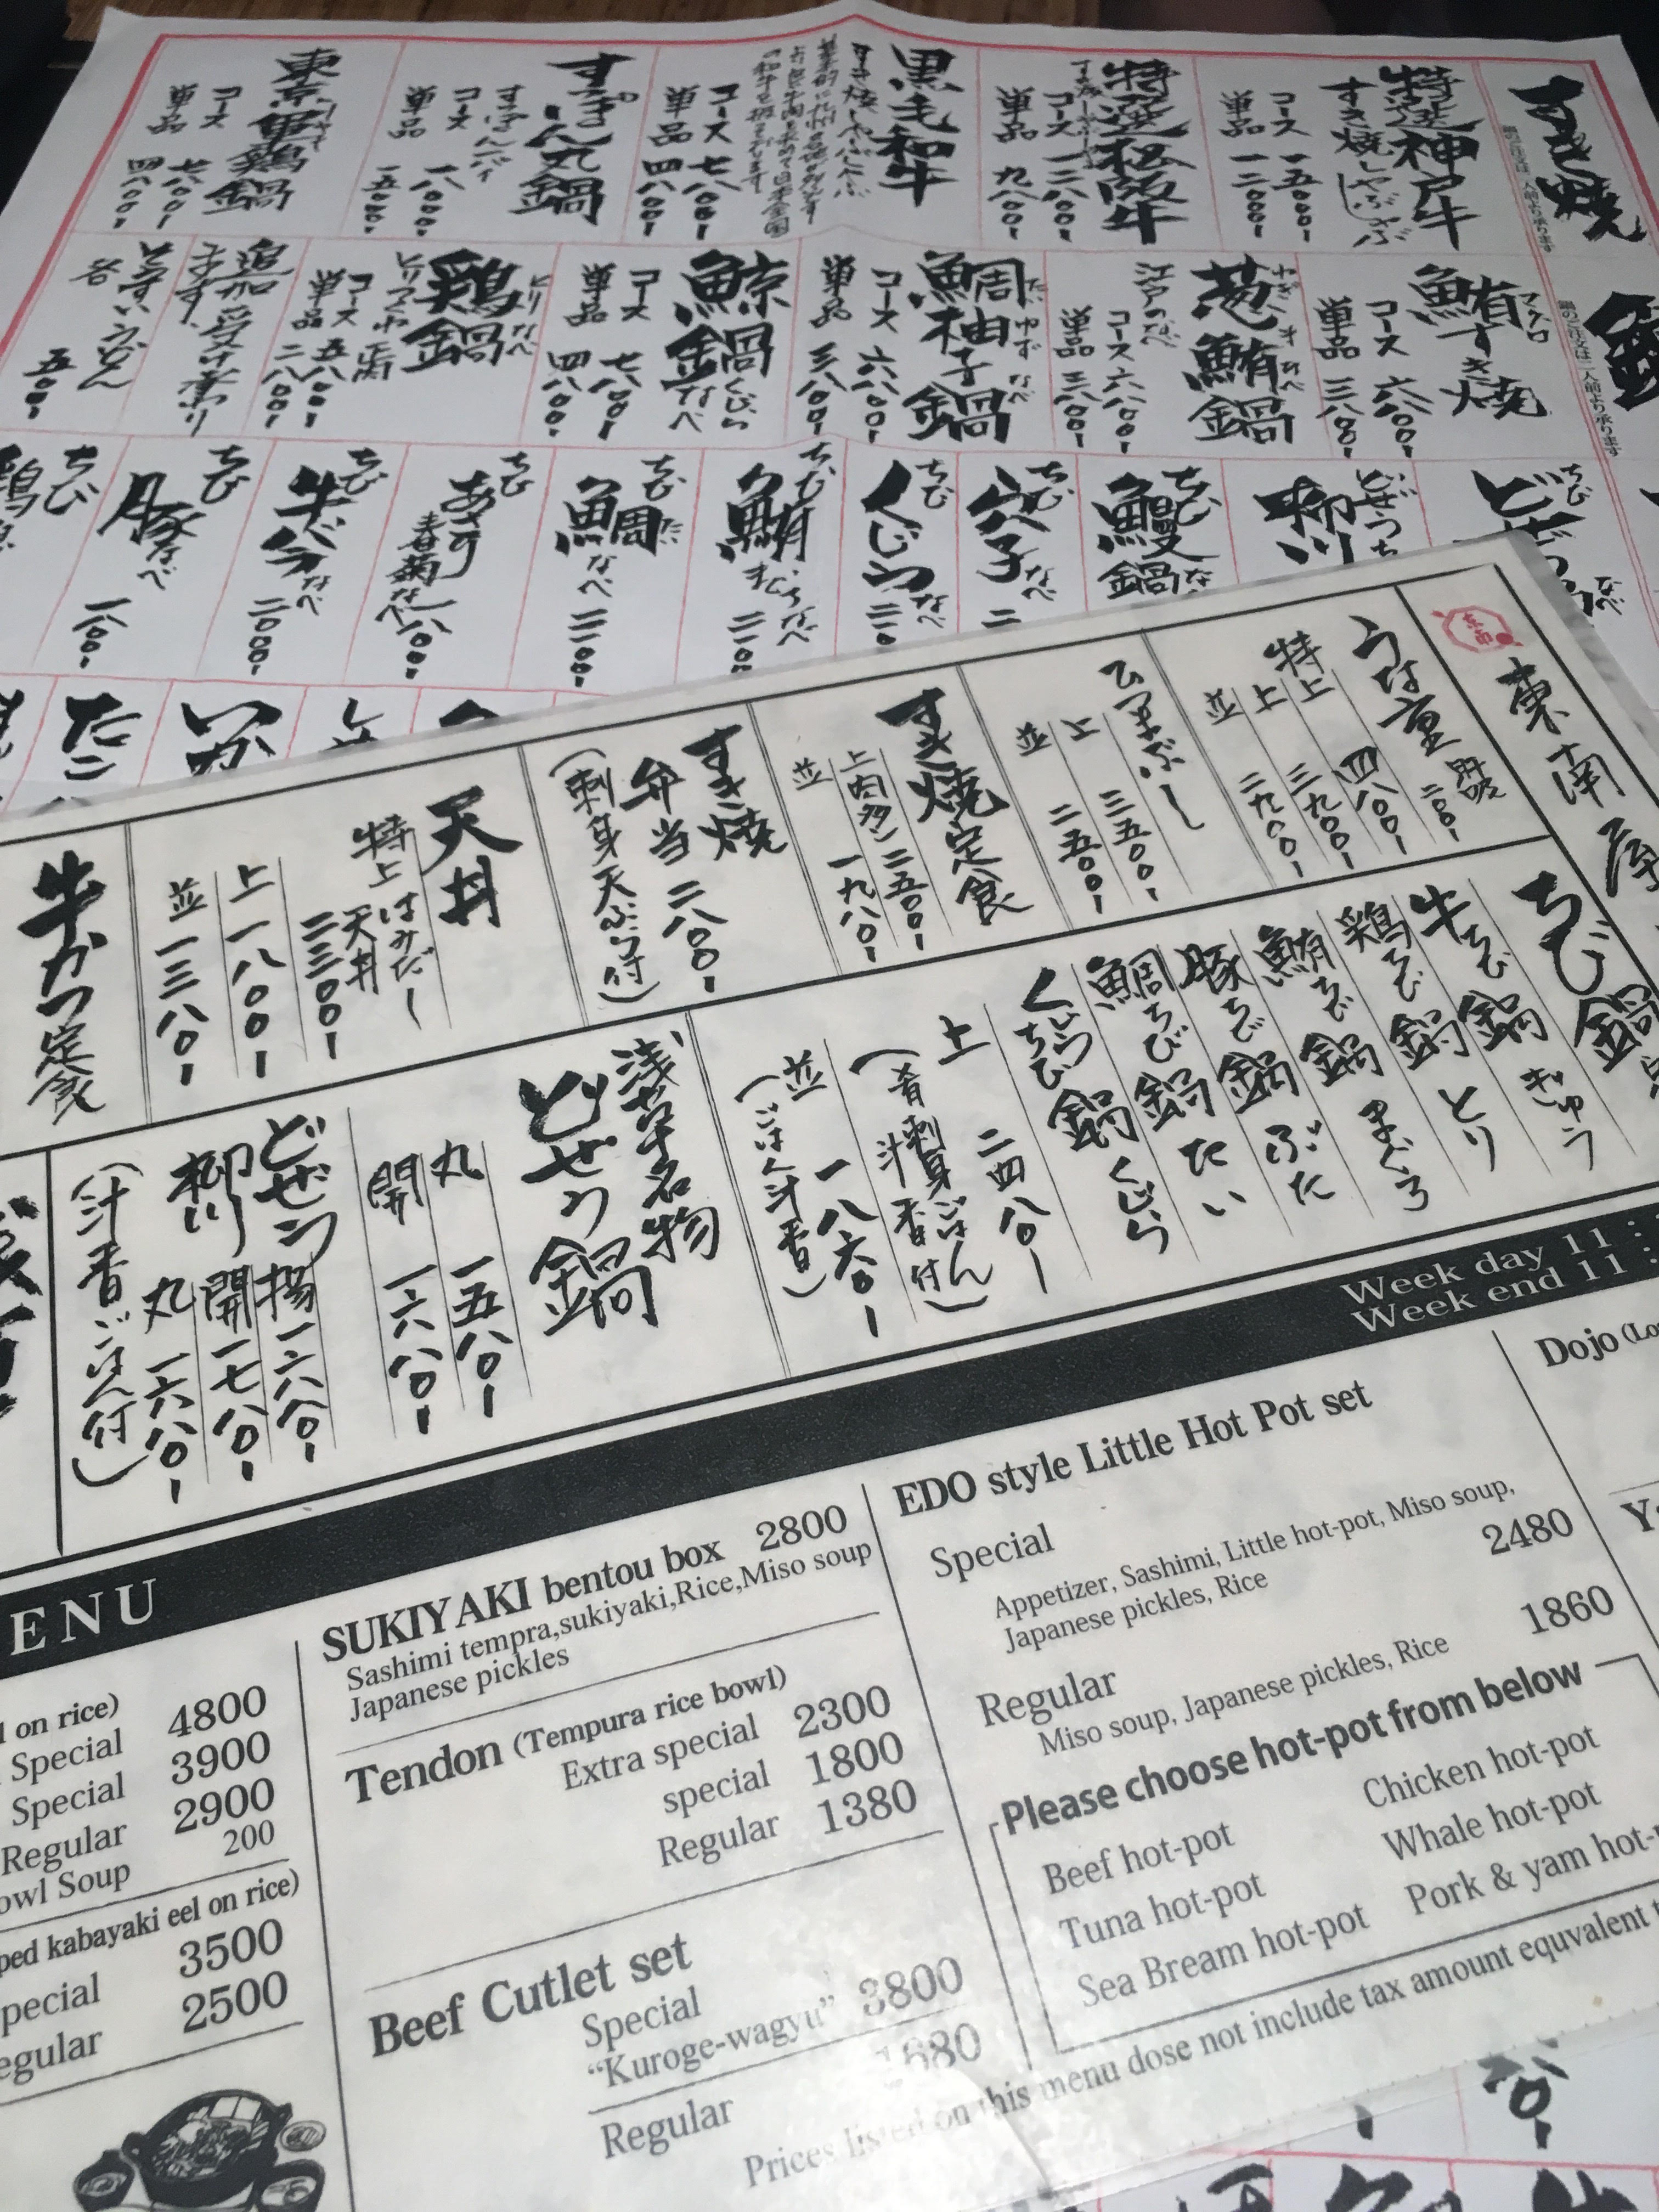 すき焼
特選神戸牛
すき焼 しゃぶしゃぶ
コース 一五〇〇〇-
単品 一二〇〇〇-
特選松阪牛
コース 一二八〇〇-
単品 九八〇〇-
黒毛和牛
コース 七八〇〇-
単品 四八〇〇-
すっぽん丸鍋
コース 一八〇〇〇-
単品 一五〇〇〇-
東京軍鶏鍋
コース 七八〇〇-
単品 四八〇〇-
鮪すき焼
コース 六八〇〇-
単品 三八〇〇-
葱鮪鍋
江戸のなべ
コース 六八〇〇-
単品 三八〇〇-
鯛柚子鍋
コース 六八〇〇-
単品 三八〇〇-
鯨鍋 くじらなべ
コース 七八〇〇-
単品 四八〇〇-
鶏鍋 とりなべ
コース 五八〇〇-
単品 二八〇〇-
追加受け承り
ます。
ぞうすい うどん
各 五〇〇-
ちび どぜう なべ
どぜう 柳川
ちび 鰻鍋
ちび 穴子なべ
ちび くじらなべ
ちび 鮪
ちび 鯛なべ
ちび あさり 春菊なべ 一八〇〇-
ちび 牛バラなべ 二〇〇〇-
ちび 豚なべ 一八〇〇-
ちび 鶏
いか
たこ
東南屋
うな重 肝吸 二〇〇-
特上 四八〇〇-
上 三九〇〇-
並 二九〇〇-
ひつまぶし
上 三五〇〇-
並 二五〇〇-
すき焼定食
上(肉多め) 二五〇〇-
並 一九八〇-
すき焼
弁当 二八〇〇-
(刺身天ぷら付)
天丼
特上 はみだし
天丼
二三〇〇-
上 一八〇〇-
並 一三八〇-
牛かつ定食
ちび鍋
牛ちび鍋 ぎゅう
鶏ちび鍋 とり
鮪ちび鍋 まぐろ
豚ちび鍋 ぶた
鯛ちび鍋 たい
くじらちび鍋 くじら
上 二四八〇-
(肴 刺身 ごはん
汁 香 付)
並 一八六〇-
(ごはん 汁 香)
浅草名物
どぜう鍋
丸 一五八〇-
開 一六八〇-
どぜう
柳川
揚 一六八〇-
開 一七八〇-
丸 一六八〇-
(汁 香 ごはん付)
Week day 11:
Week end 11:
ENU
on rice)
Special 4800
Special 3900
Regular 2900
owl Soup 200
ped kabayaki eel on rice)
pecial 3500
egular 2500
SUKIYAKI bentou box 2800
Sashimi tempra,sukiyaki,Rice,Miso soup
Japanese pickles
Tendon (Tempura rice bowl)
Extra special 2300
special 1800
Regular 1380
Beef Cutlet set
Special
"Kuroge-wagyu" 3800
Regular 1680
EDO style Little Hot Pot set
Special
Appetizer, Sashimi, Little hot-pot, Miso soup,
Japanese pickles, Rice 2480
Regular 1860
Miso soup, Japanese pickles, Rice
Please choose hot-pot from below
Beef hot-pot Chicken hot-pot
Tuna hot-pot Whale hot-pot
Sea Bream hot-pot Pork & yam hot-
Dojo
Prices listed on this menu dose not include tax amount equvalent